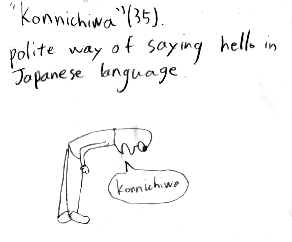 "Konnichiwa" (35).
polite way of saying hello in
Japanese language.
Konnichiwa